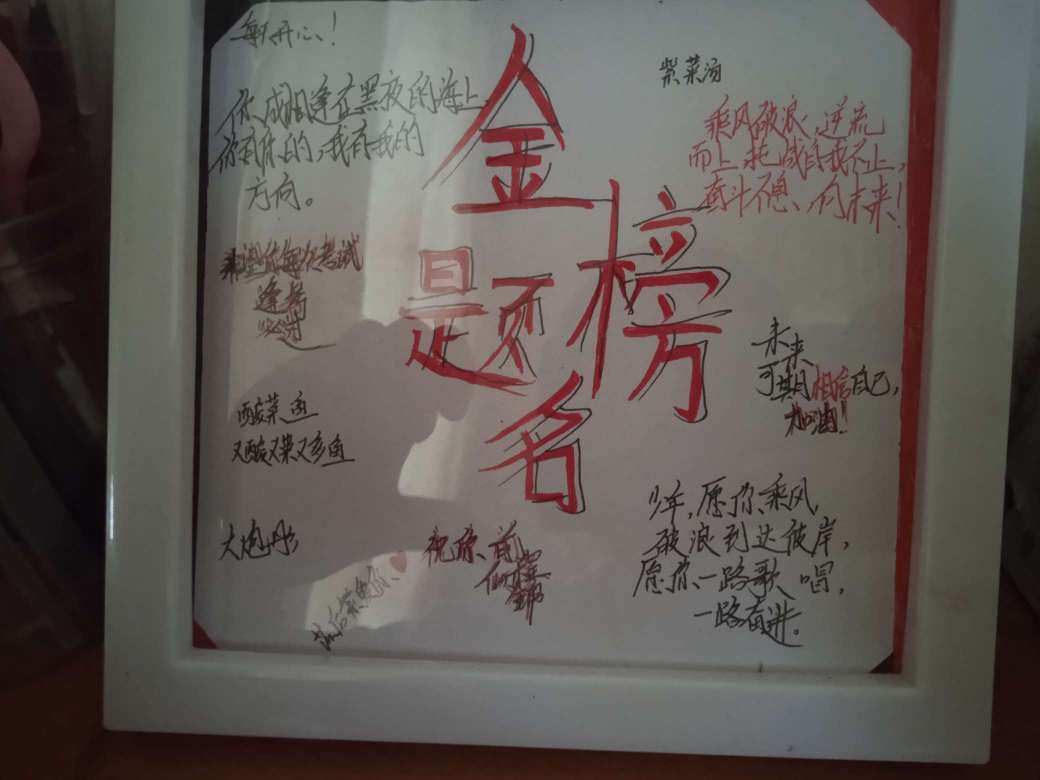 每天开心！
你我相逢在黑夜的海上
你有你的，我有我的
方向。
希望你每次考试
逢考
必过
酸菜鱼
又酸又菜又多鱼
大炮彤
金
榜
题
名
祝你、前
似锦
紫菜汤
乘风破浪，逆流
而上，
奋斗不息、向未来！
未来
可期相信自己，
加油！
少年，愿你、乘风
破浪到达彼岸，
愿你、一路歌唱，
一路奋进。